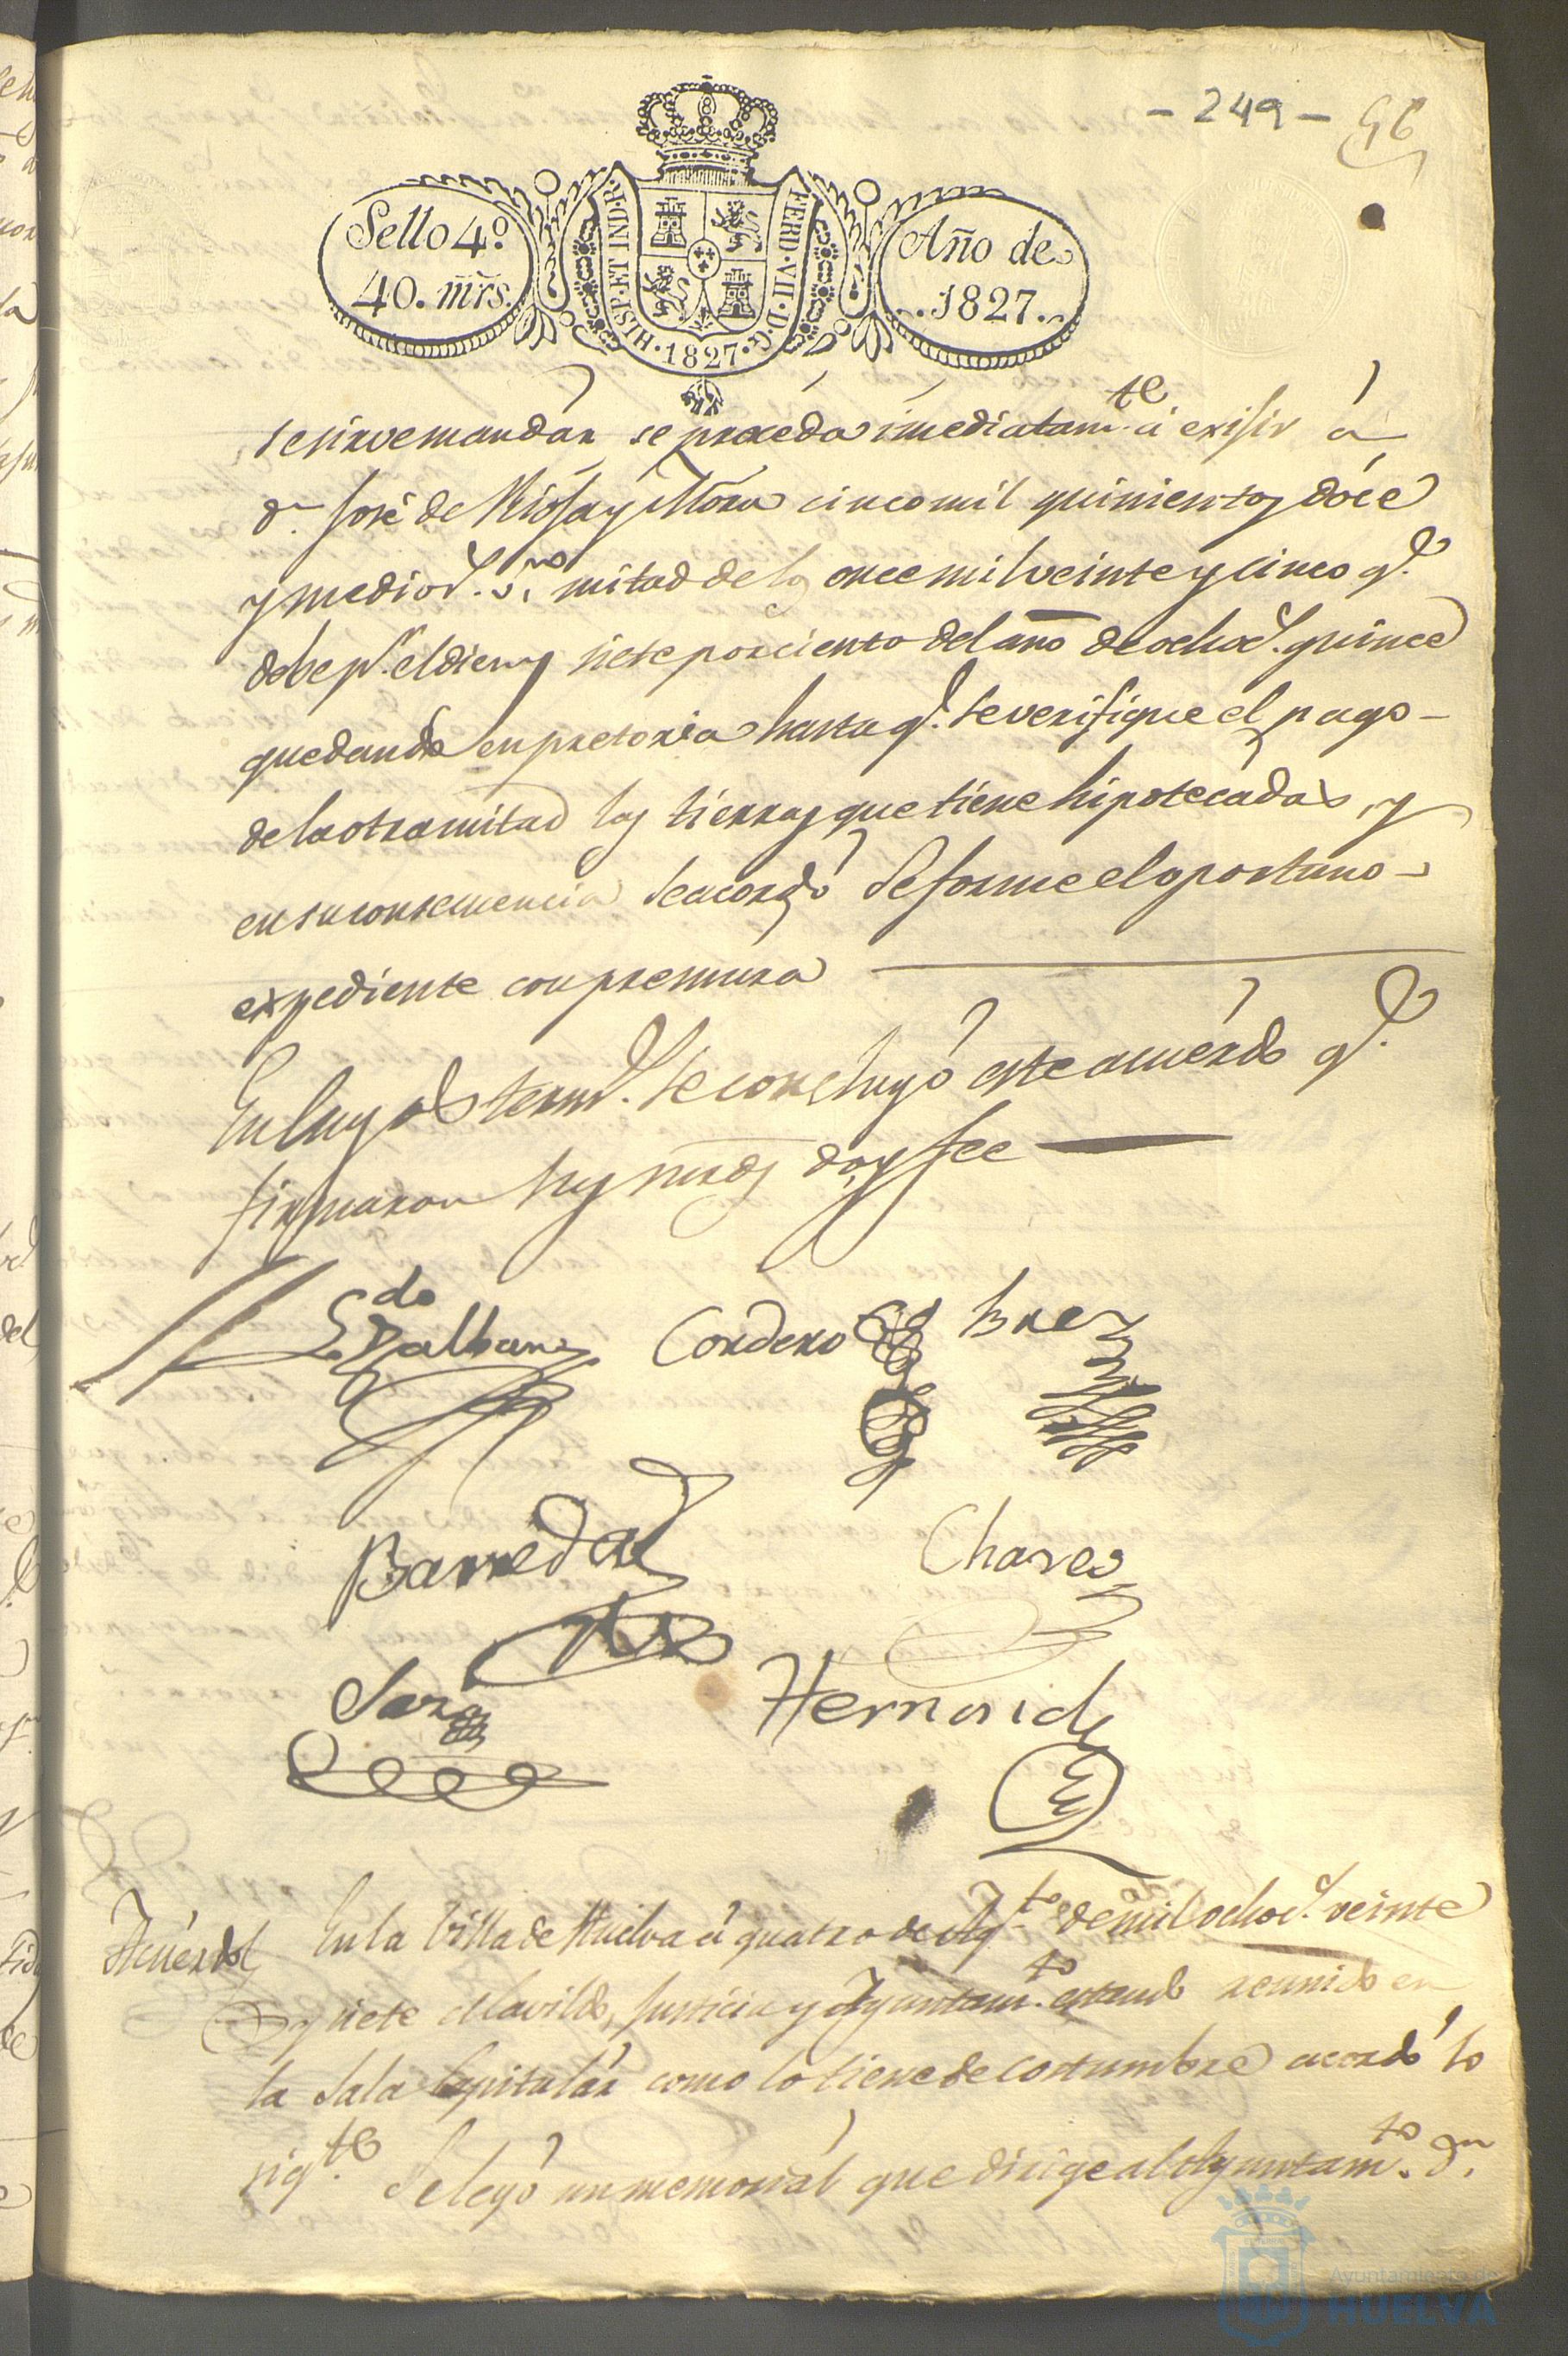 - 249 - 96
Sello 4º.
40. mrs.
HISP. ET IND. R.
FERD. VII. D. G.
1827
Año de
1827.
se sirve mandar se proceda imediatamte. á exisir á
Dn. José de Miosa y Mora cinco mil quinientos doce
y medio rs. vno mitad de los once mil veinte y cinco q.
debe pr. el diez y siete por ciento del año de ochocs. quince
quedando en pretoria hasta q. se verifique el pago -
de la otra mitad las tierras que tiene hipotecadas, y
en su consecuencia se acordó se forme el oportuno -
expediente con premura
En cuyos term.s se concluyó este acuerdo q.
firmaron sus mrds doy fee
Ldo Cordero Baez
Barreda Chaves
Hernand
Acuerdo En la Villa de Huelva á quatro de Agto. de mil ochocs. veinte
y siete el cavildo, Justicia y Ayuntamto. estando reunido en
la Sala Capitular como lo tiene de costumbre acordó lo
sigte. Se leyó un memorial que dirige al Ayuntamto. Dn.
Ayuntamiento de
HUELVA